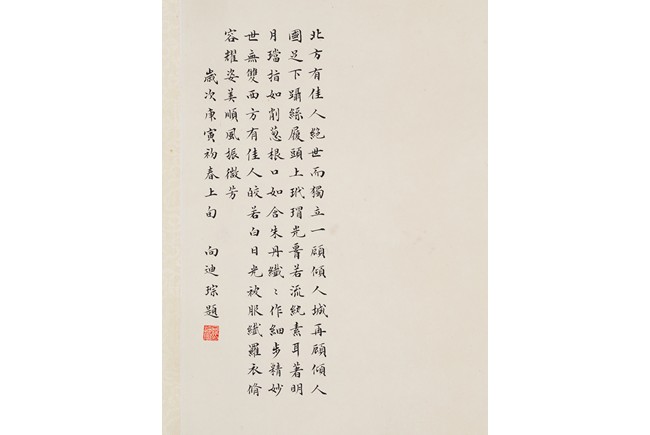 北方有佳人絶世而獨立一顧傾人城再顧傾人
國足下躡絲履頭上玳瑁光腰若流紈素耳著明
月璫指如削葱根口如含朱丹纖〻作細步精妙
世無雙西方有佳人皎若白日光被服纖羅衣脩
容耀姿美順風振微芳
歲次庚寅初春上旬 向迪琮題